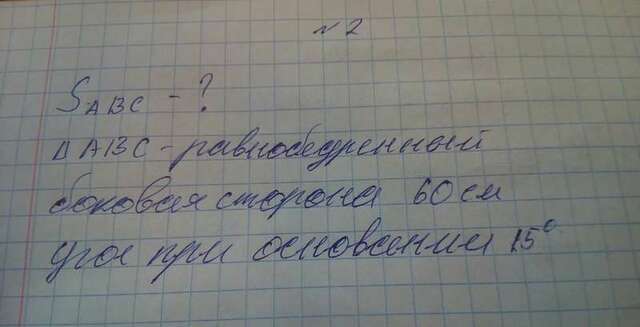 № 2
S ABC - ?
Δ ABC - равнобедренный
боковая сторона 60 см
угол при основании 15°